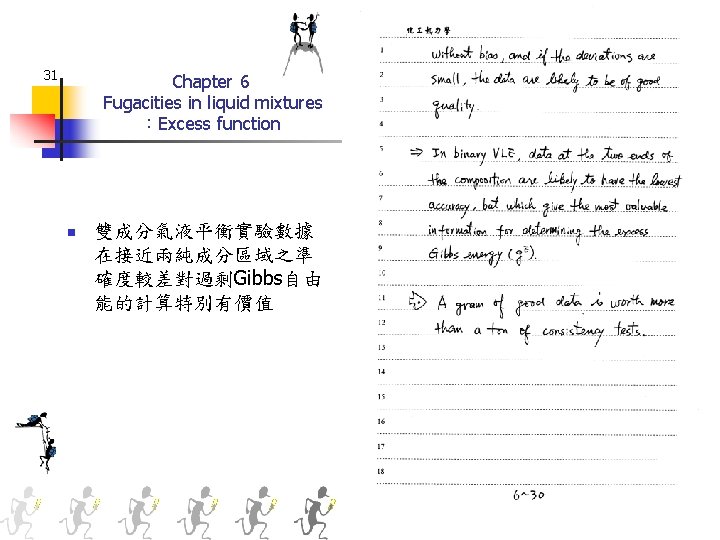 31
Chapter 6
Fugacities in liquid mixtures
：Excess function
雙成分氣液平衡實驗數據
在接近兩純成分區域之準
確度較差對過剩Gibbs自由
能的計算特別有價值
化工熱力學
1 without bias, and if the deviations are
2 small, the data are likely to be of good
3 quality.
4
5 ⇒ In binary VLE, data at the two ends of
6 the composition are likely to have the lowest
7 accuracy, but which give the most valuable
8 information for determining the excess
9 Gibbs energy (gᴱ).
10
11 ⇒ A gram of good data is worth more
12 than a ton of consistency tests.
13
14
15
16
17
18
6~30